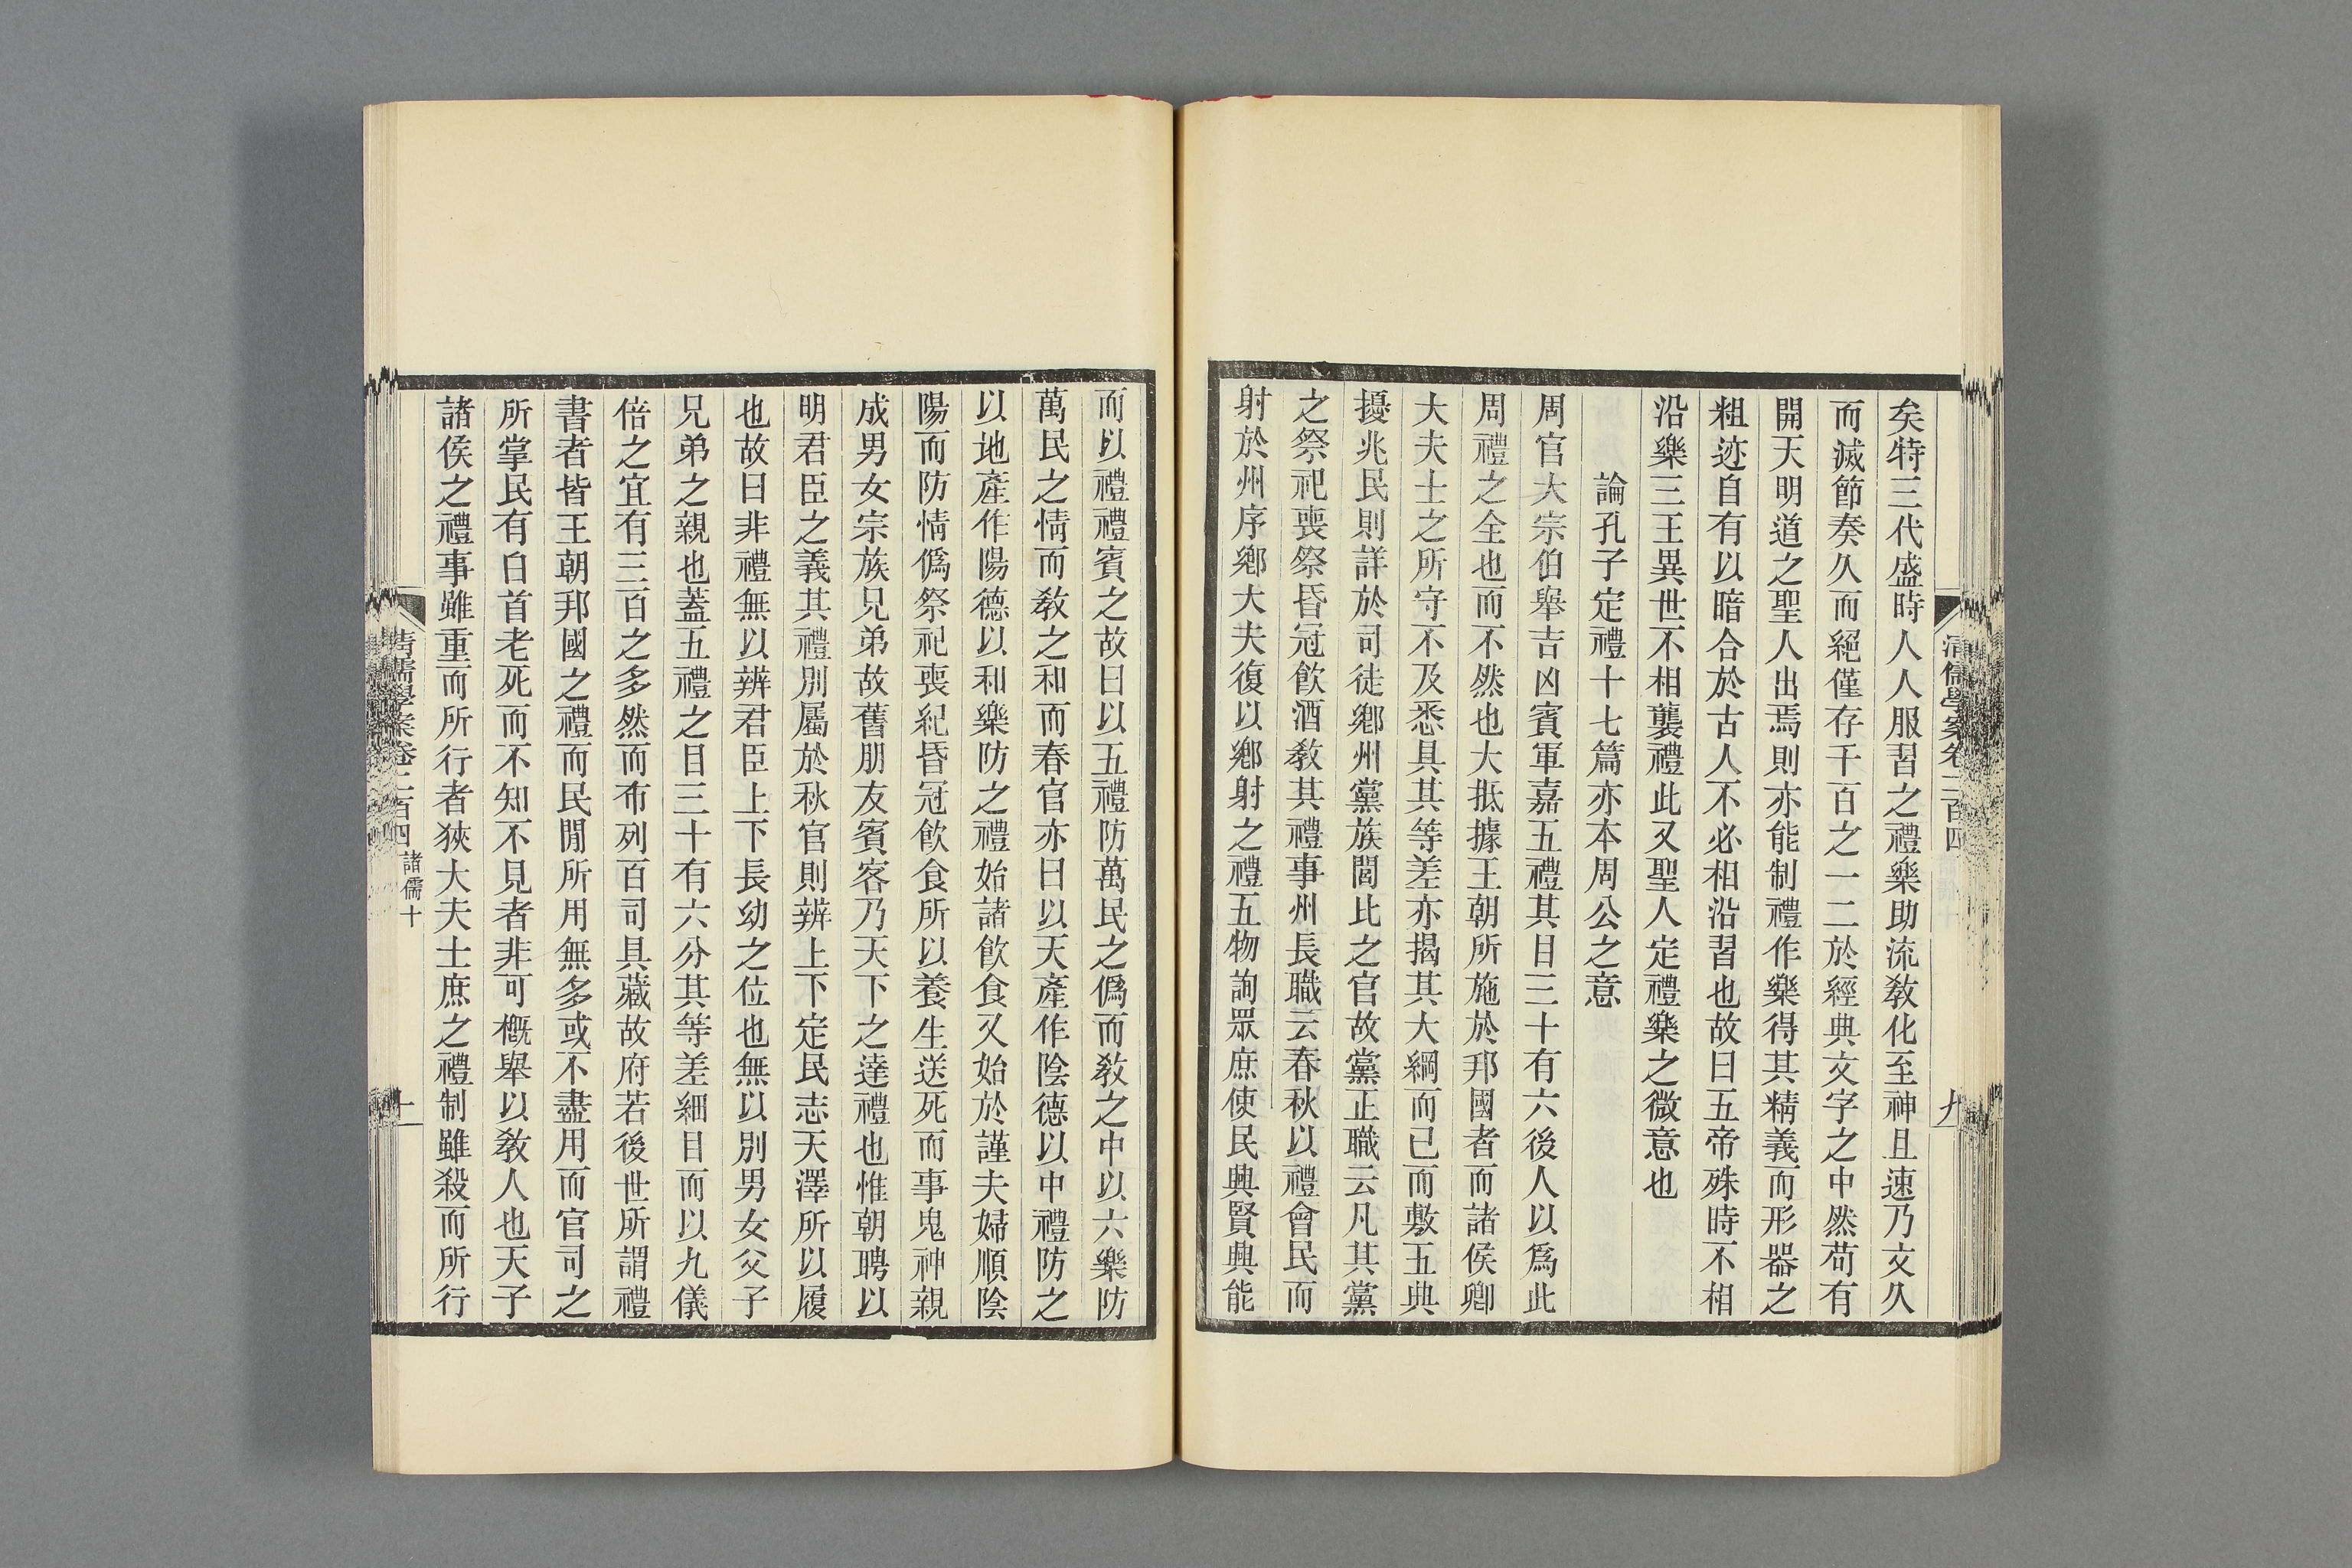 矣特三代盛時人人服習之禮樂助流敎化至神且速乃交久
而滅節奏久而絕僅存千百之一二於經典文字之中然苟有
開天明道之聖人出焉則亦能制禮作樂得其精義而形器之
粗迹自有以暗合於古人不必相沿習也故曰五帝殊時不相
沿樂三王異世不相襲禮此又聖人定禮樂之微意也
論孔子定禮十七篇亦本周公之意
周官大宗伯舉吉凶賓軍嘉五禮其目三十有六後人以爲此
周禮之全也而不然也大抵據王朝所施於邦國者而諸侯卿
大夫士之所守不及悉具其等差亦揭其大綱而已而敷五典
擾兆民則詳於司徒鄕州黨族閭比之官故黨正職云凡其黨
之祭祀喪祭昏冠飮酒敎其禮事州長職云春秋以禮會民而
射於州序鄕大夫復以鄕射之禮五物詢眾庶使民興賢興能
清儒學案卷二百四
九
而以禮禮賓之故曰以五禮防萬民之僞而敎之中以六樂防
萬民之情而敎之和而春官亦曰以天產作陰德以中禮防之
以地產作陽德以和樂防之禮始諸飮食又始於謹夫婦順陰
陽而防情僞祭祀喪紀昏冠飮食所以養生送死而事鬼神親
成男女宗族兄弟故舊朋友賓客乃天下之達禮也惟朝聘以
明君臣之義其禮別屬於秋官則辨上下定民志天澤所以履
也故曰非禮無以辨君臣上下長幼之位也無以別男女父子
兄弟之親也蓋五禮之目三十有六分其等差細目而以九儀
倍之宜有三百之多然而布列百司具藏故府若後世所謂禮
書者皆王朝邦國之禮而民閒所用無多或不盡用而官司之
所掌民有白首老死而不知不見者非可概舉以敎人也天子
諸侯之禮事雖重而所行者狹大夫士庶之禮制雖殺而所行
清儒學案卷二百四 諸儒十